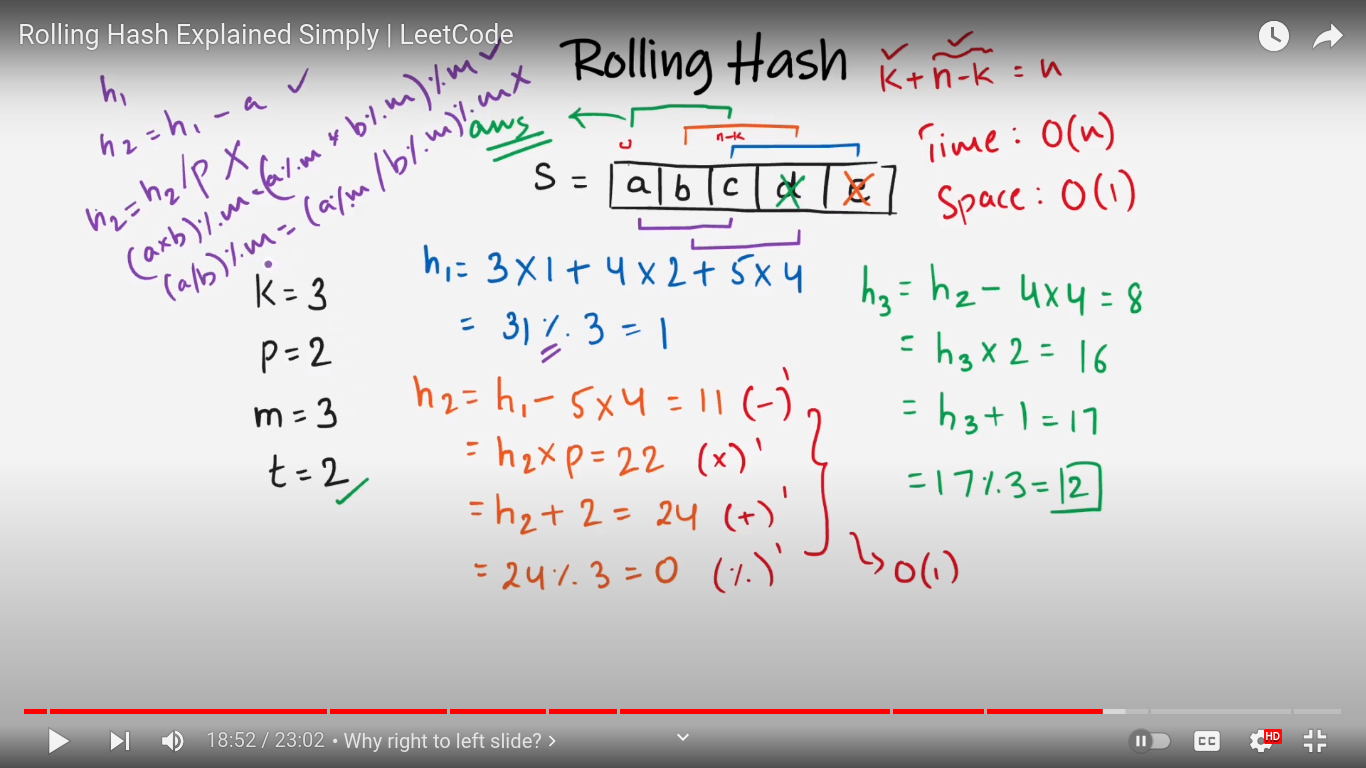 Rolling Hash Explained Simply | LeetCode
Rolling Hash
k + n-k = n
h₁
h₂ = h₁ - a ✓
h₂ = h₂/p X
(a×b)%m = (a%m * b%m)%m ✓
(a/b)%m = (a%m / b%m)%m X
ans
n-k
Time : O(n)
Space : O(1)
S = a b c d
k = 3
p = 2
m = 3
t = 2 ✓
h₁ = 3×1 + 4×2 + 5×4
= 31 % 3 = 1
h₂ = h₁ - 5×4 = 11 (-)'
= h₂×p = 22 (×)'
= h₂ + 2 = 24 (+)'
= 24 % 3 = 0 (%)'
O(1)
h₃ = h₂ - 4×4 = 8
= h₃ × 2 = 16
= h₃ + 1 = 17
= 17 % 3 = 2
18:52 / 23:02 • Why right to left slide? >
CC
HD